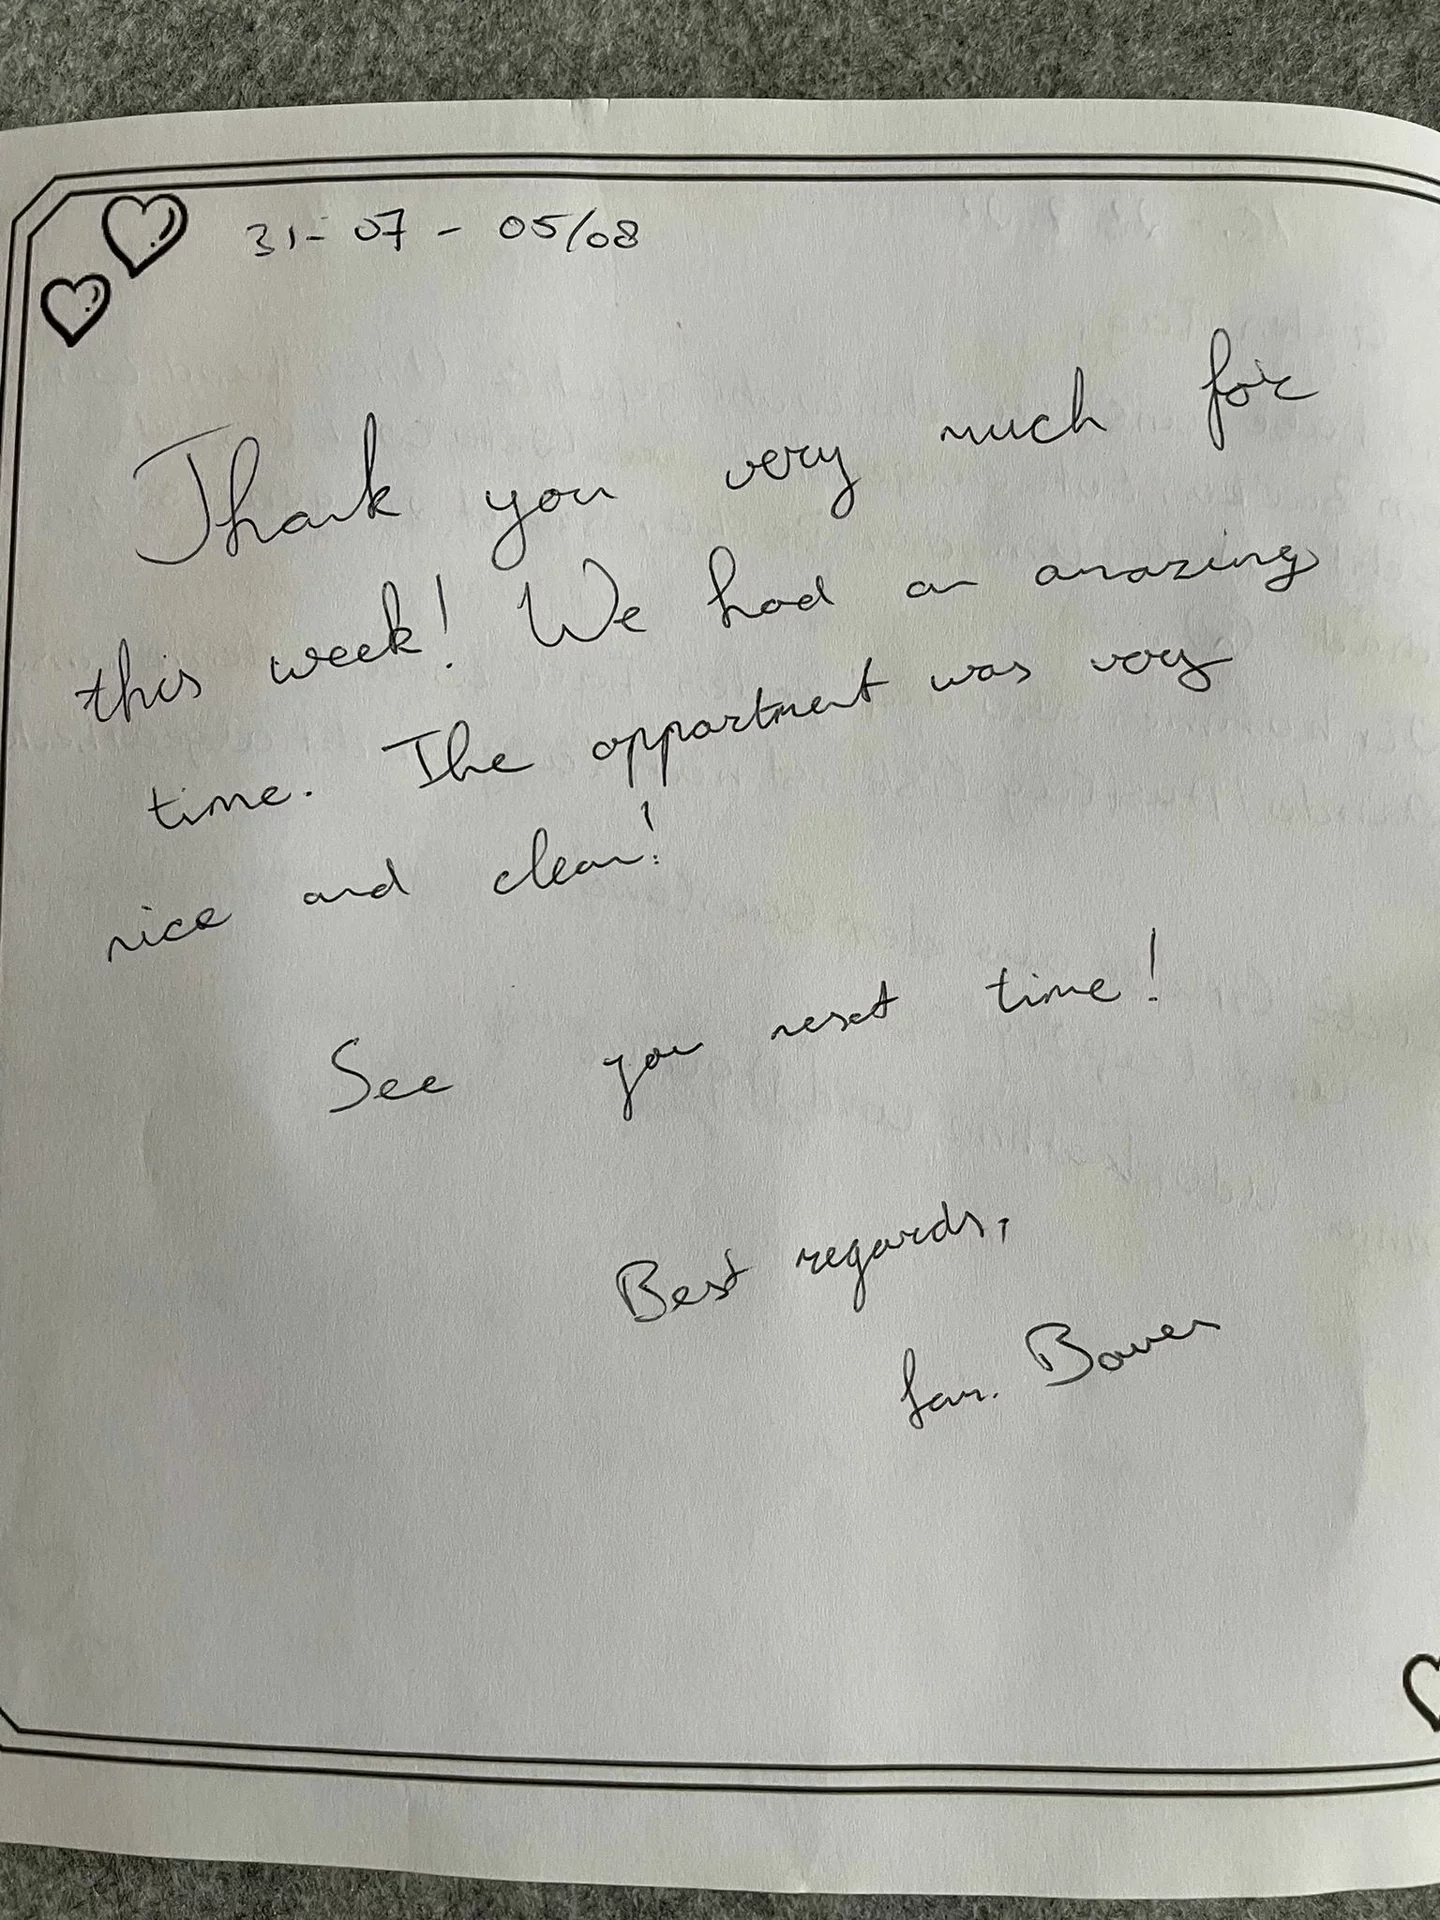 31-07 - 05/08
Thank you very much for
this week! We had an amazing
time. The appartment was very
nice and clean!
See you next time!
Best regards,
fam.